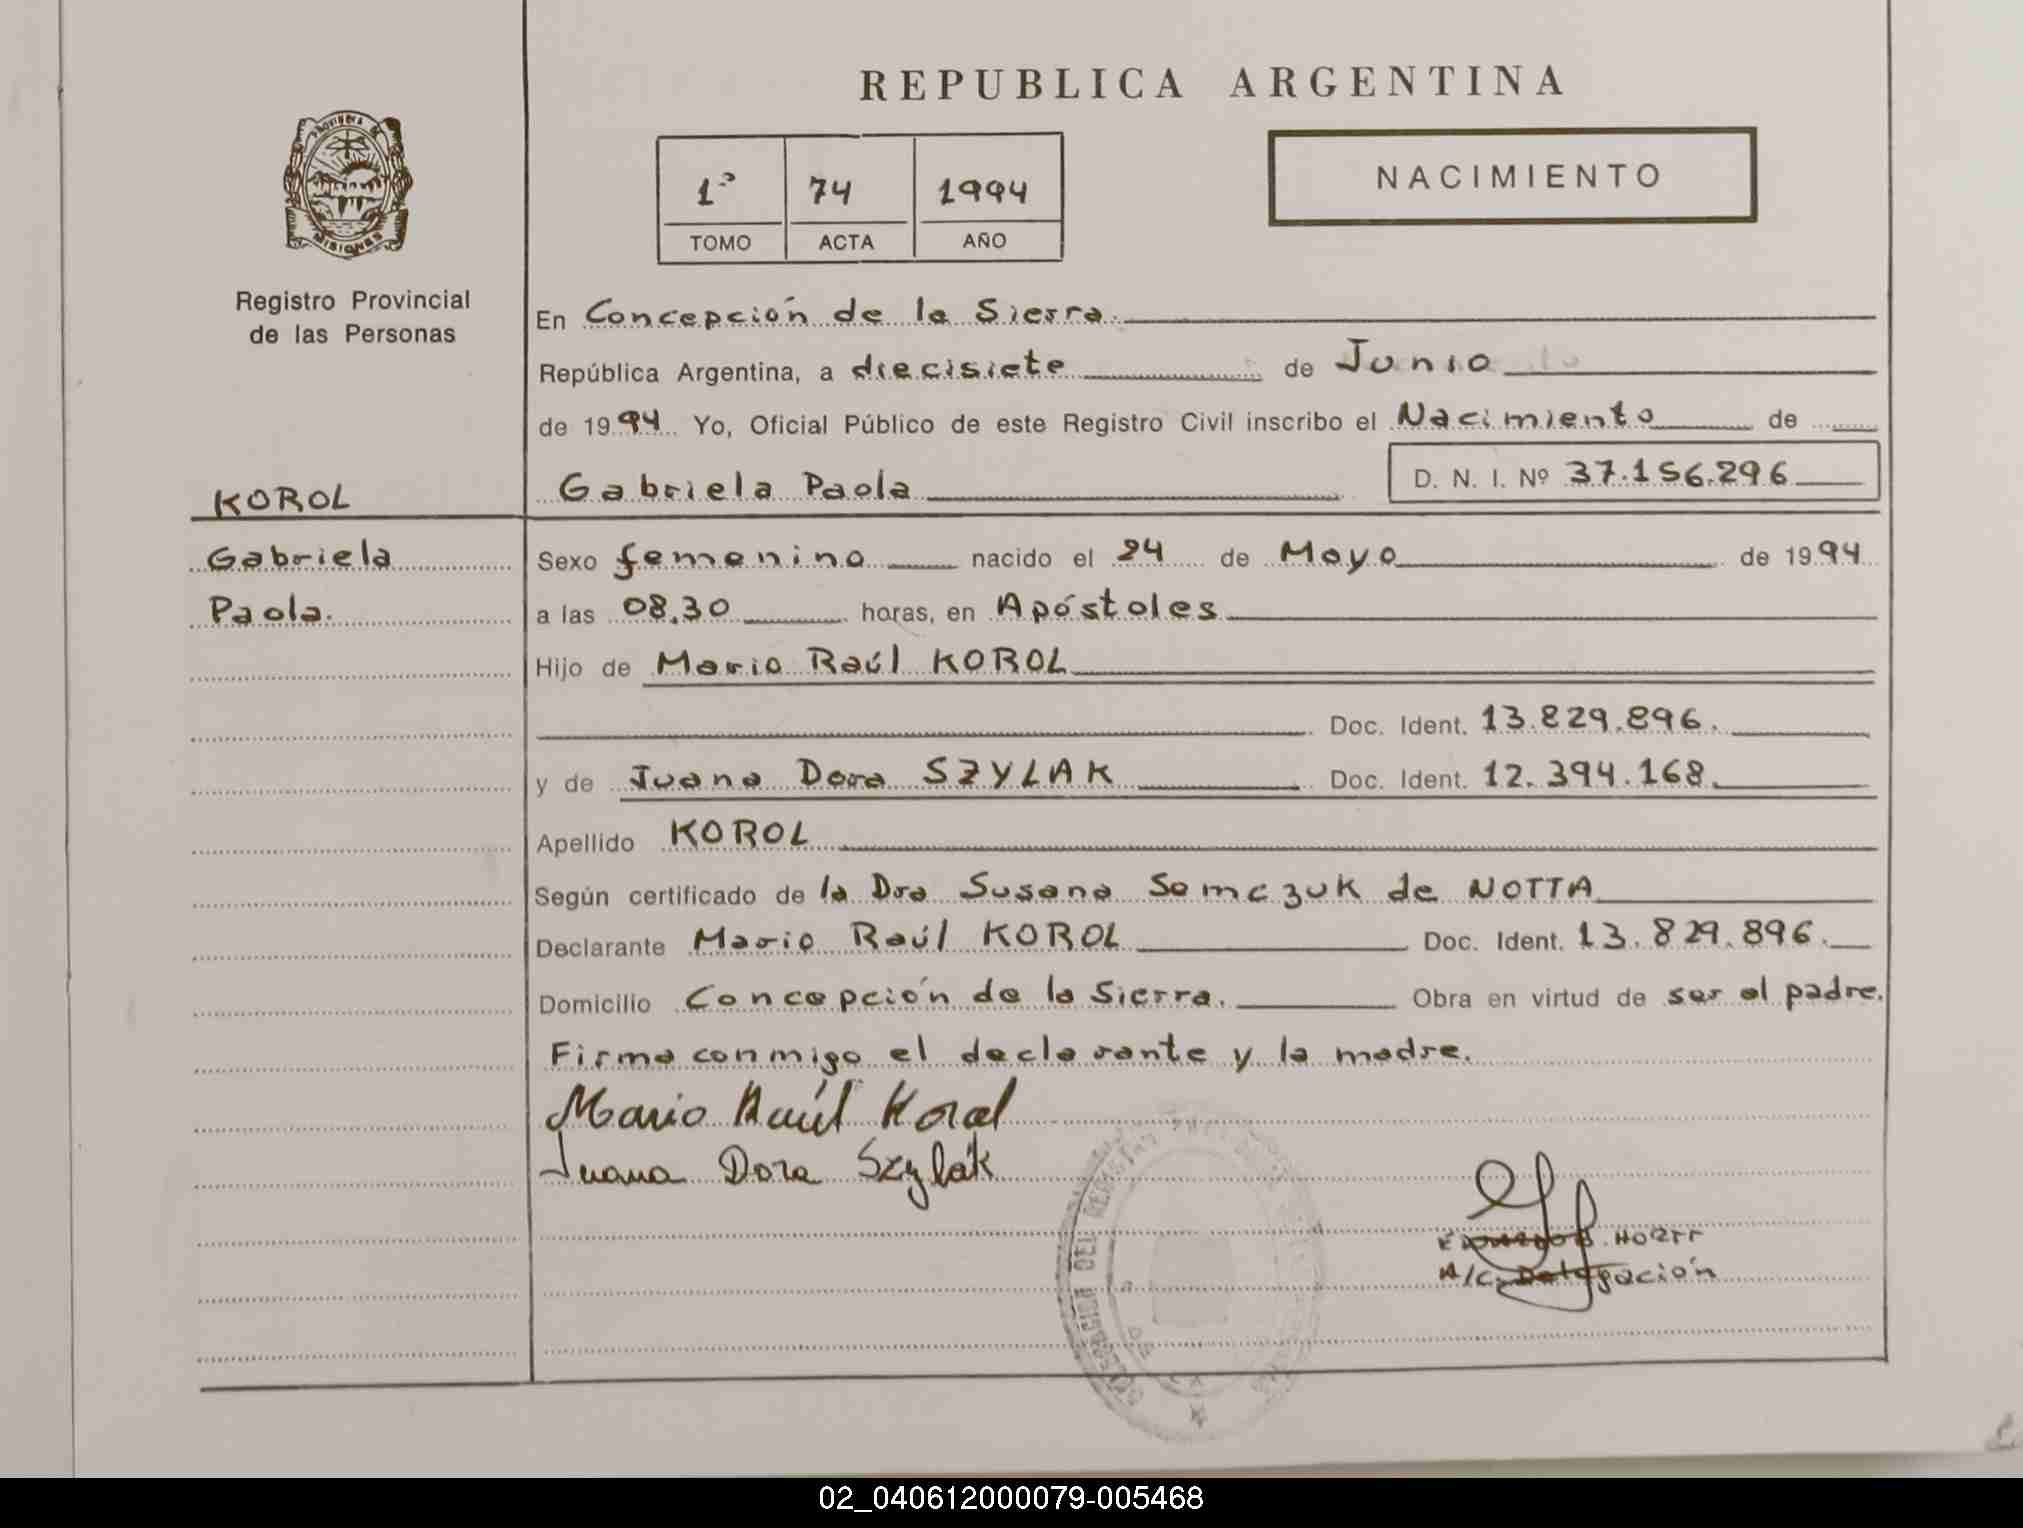 REPUBLICA ARGENTINA
PROVINCIA DE
MISIONES
1º 74 1994
TOMO ACTA AÑO
NACIMIENTO
Registro Provincial
de las Personas
En Concepción de la Sierra
República Argentina, a diecisiete de Junio
de 1994 Yo, Oficial Público de este Registro Civil inscribo el Nacimiento de
KOROL
Gabriela Paola D. N. I. Nº 37.156.296
Gabriela
Paola.
Sexo femenino nacido el 24 de Mayo de 1994
a las 08,30 horas, en Apóstoles
Hijo de Mario Raúl KOROL
Doc. Ident. 13.829.896.
y de Juana Dora SZYLAK Doc. Ident. 12.394.168.
Apellido KOROL
Según certificado de la Dra Susana Semczuk de NOTTA
Declarante Mario Raúl KOROL Doc. Ident. 13.829.896.
Domicilio Concepción de la Sierra. Obra en virtud de ser el padre.
Firma conmigo el declarante y la madre.
Mario Raúl Korol
Juana Dora Szylak
DEL REGISTRO
A/C. Delegación
02_040612000079-005468